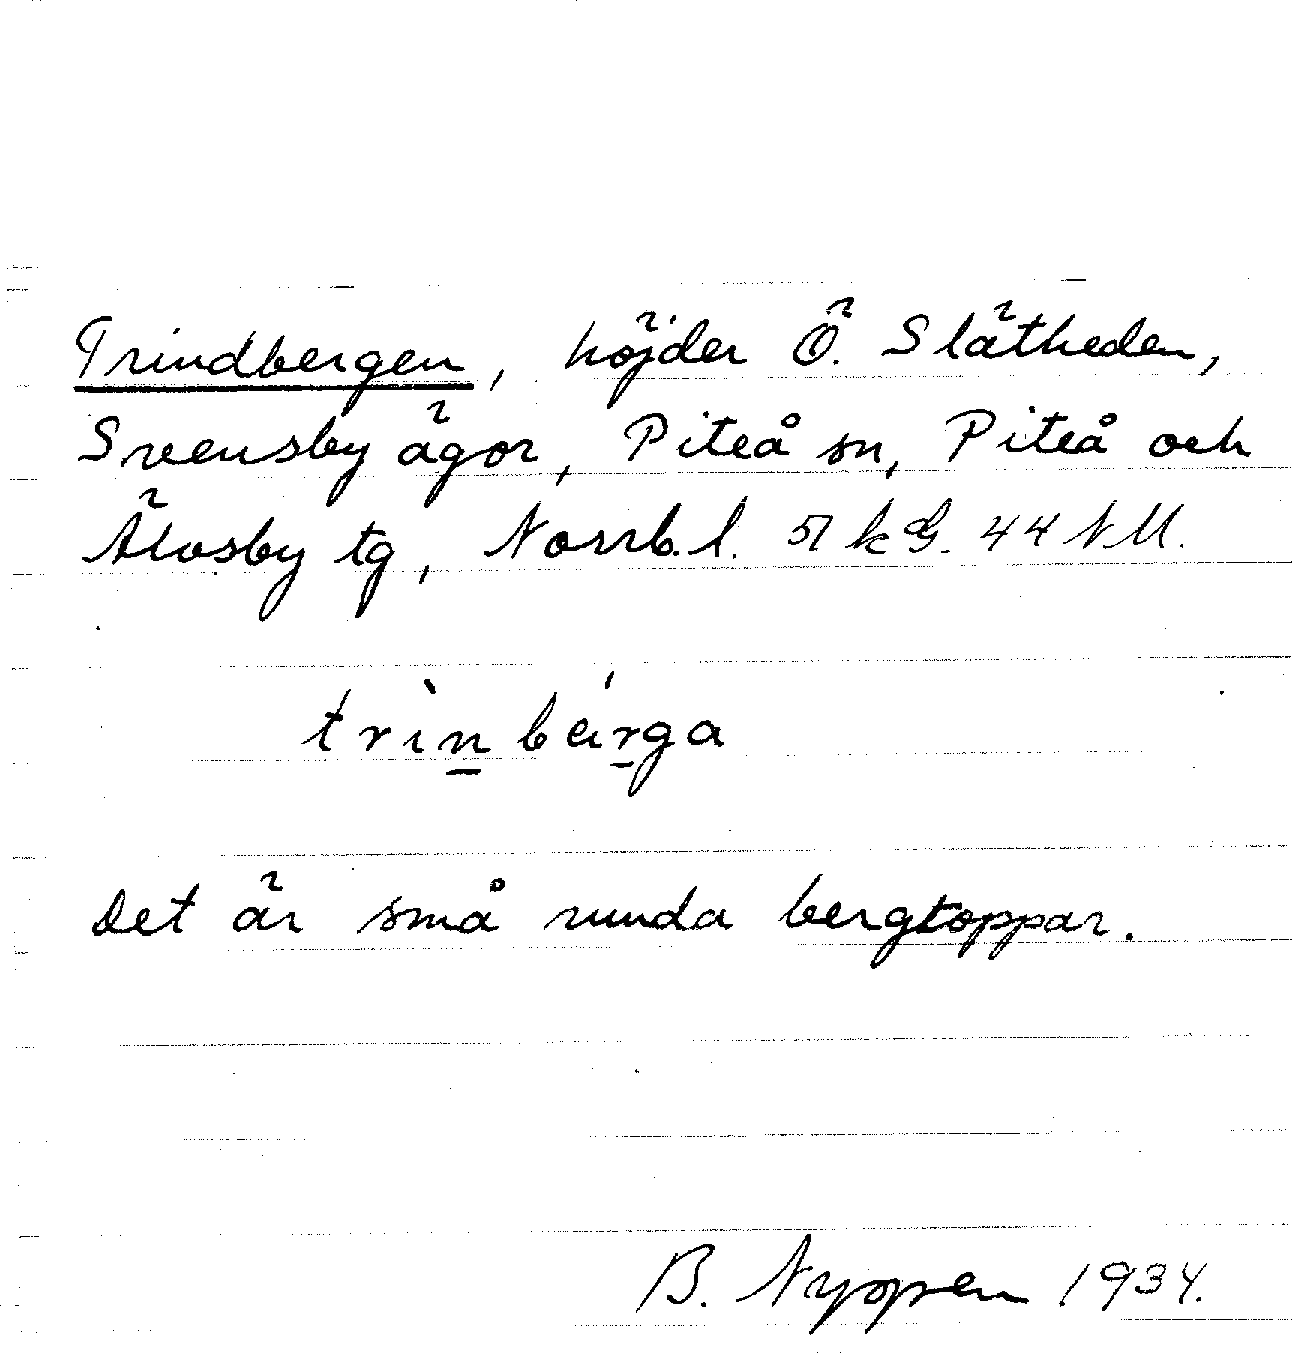 Trindbergen, höjder Ö. Slätheden,
Svensby ägor, Piteå sn, Piteå och
Älvsby tg, Norrb. l. 51 kG. 44 NM.
trìnbárga
det är små runda bergtoppar.
B. Nyppen 1934.